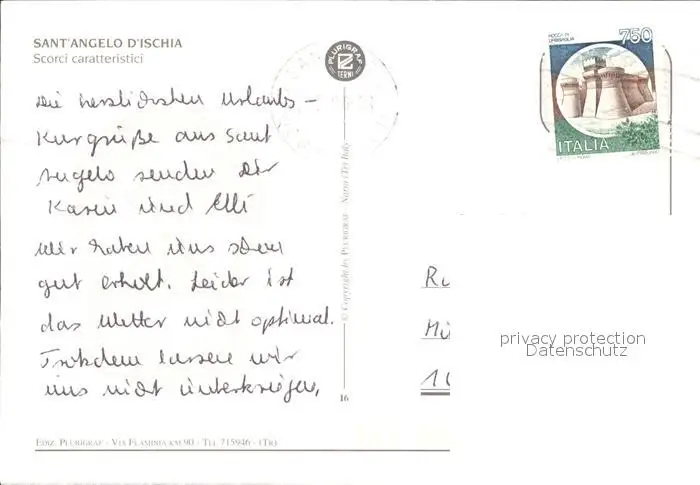 SANT'ANGELO D'ISCHIA
Scorci caratteristici
PLURIGRAF
TERNI
ROCCA DI
URBISAGLIA
750
ITALIA
Die herzlichsten Urlaubs-
Kurgrüße aus Sant
Angelo senden Dir
Karin und Elli
Wir haben uns schon
gut erholt. Leider ist
das Wetter nicht optimal.
Trotzdem lassen wir
uns nicht unterkriegen,
© Copyright by PLURIGRAF - Narni (TR) Italy
Ru
Mü
privacy protection
Datenschutz
16
EDIZ. PLURIGRAF - VIA FLAMINIA KM 90 - TEL. 715946 - (TR)